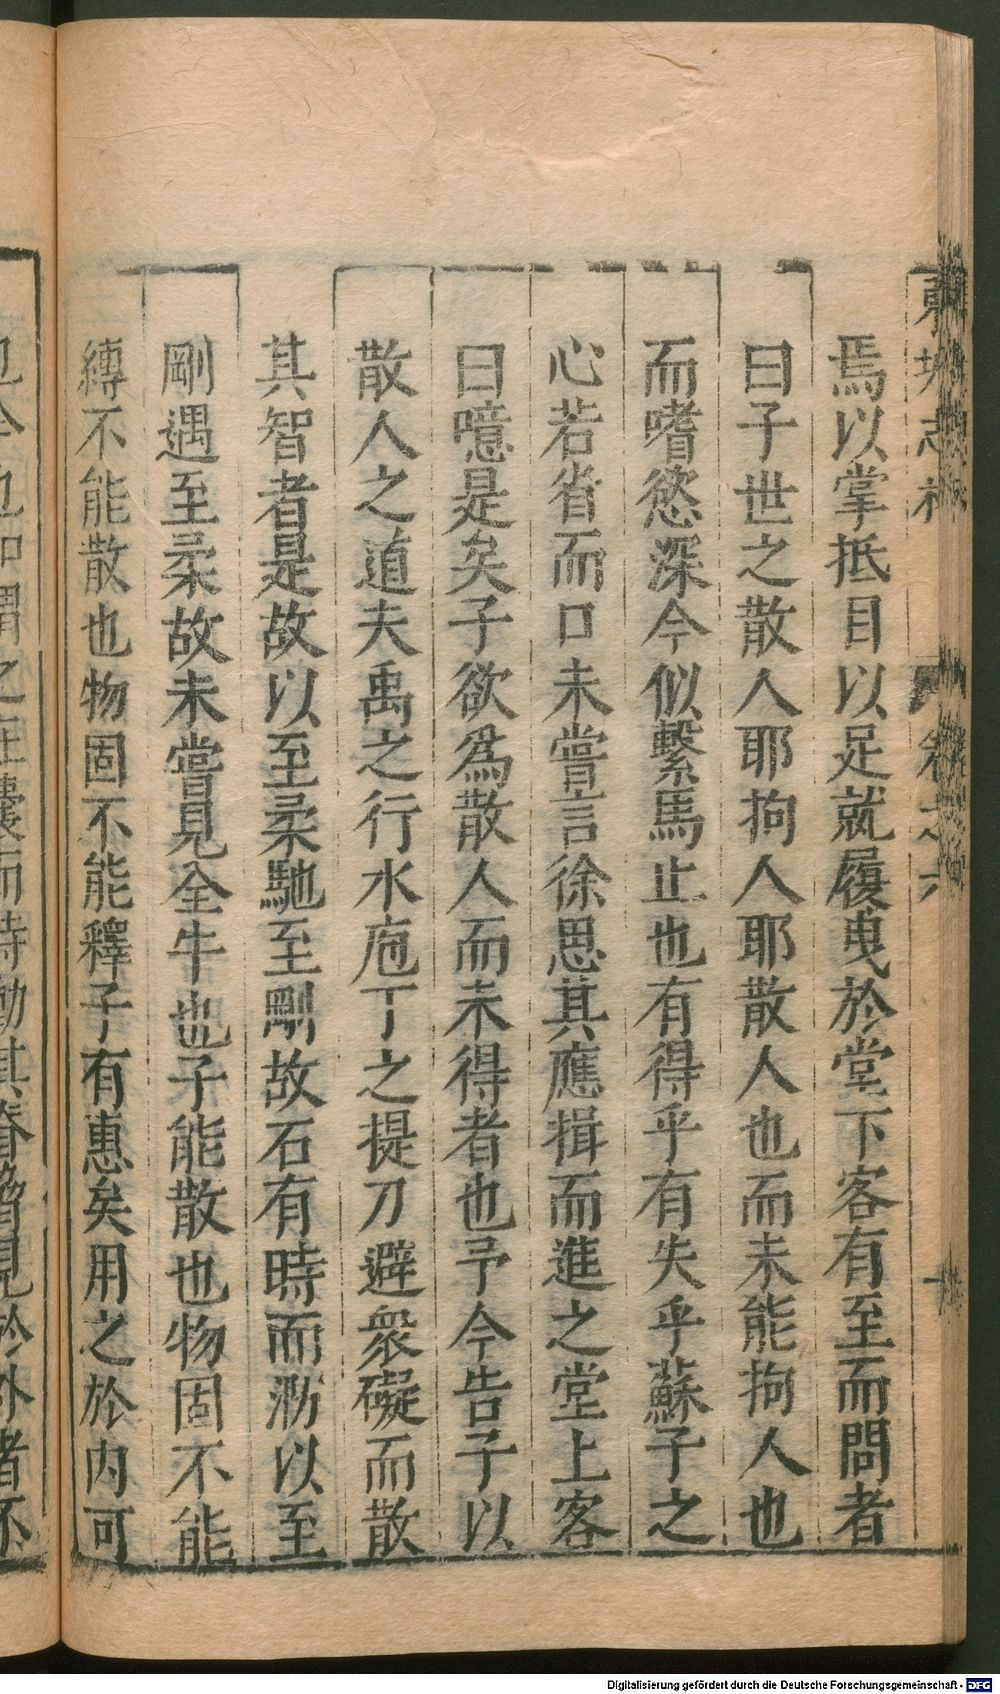 東坡志林 卷之六
焉以掌抵目以足就履曳於堂下客有至而問者
曰子世之散人耶拘人耶散人也而未能拘人也
而嗜慾深今似繫馬止也有得乎有失乎蘇子之
心若省而口未嘗言徐思其應揖而進之堂上客
曰噫是矣子欲爲散人而未得者也予今告子以
散人之道夫禹之行水庖丁之提刀避衆礙而散
其智者是故以至柔馳至剛故石有時而泐以至
剛遇至柔故未嘗見全牛也子能散也物固不能
縛不能散也物固不能釋子有惠矣用之於内可
Digitalisierung gefördert durch die Deutsche Forschungsgemeinschaft - DFG